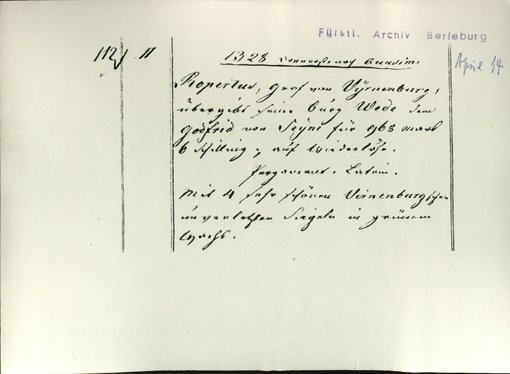 Fürstl. Archiv Berleburg
112/ 11
1328 Donnerstag nach Quasim.
April 14
Ropertus, Graf von Vyrnenburg,
übergibt seine Burg Wede dem
Godfrid von Seyne für 968 mark
6 Schillnig, auf Wiederlöse.
Pergament. Latein.
Mit 4 sehr schönen Virnenburgschen
unverletzten Siegeln in grünem
Wachs.